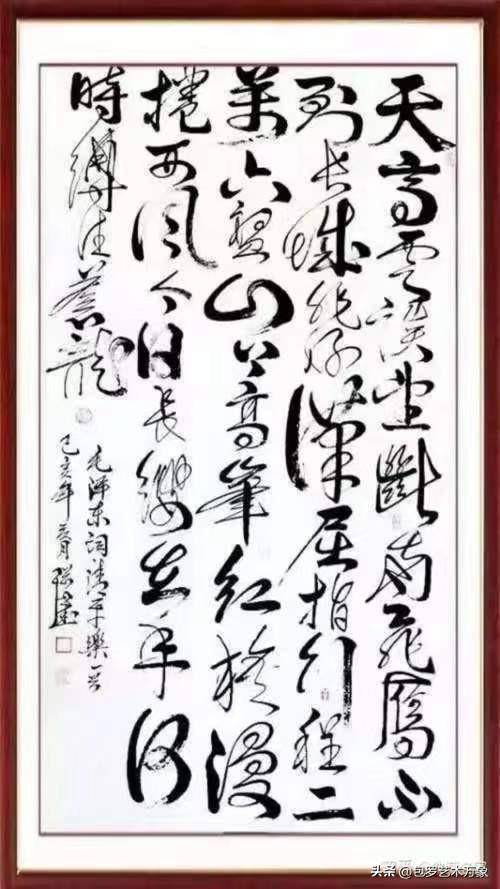 天高雲淡望斷南飛鴈不
到长城非好漢屈指行程二
萬六盤山上高峯紅旗漫
捲西风今日長纓在手何
時縛住蒼龍
毛泽东词清平樂一首
己亥年夏月
头条 @包罗艺术万象